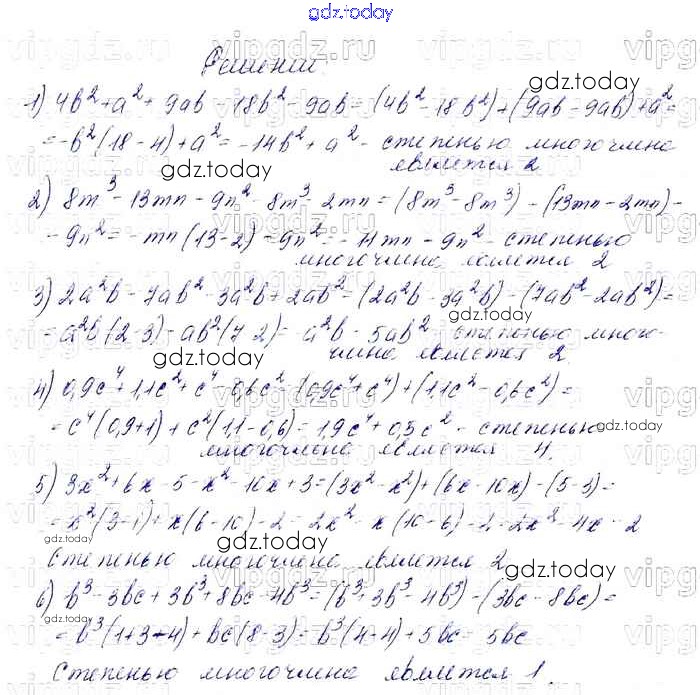 gdz.today
Решение
1) 4b² + a² + 9ab - 18b² - 9ab = (4b² - 18b²) + (9ab - 9ab) + a² =
= -b²(18 - 4) + a² = -14b² + a² - степенью многочлена
является 2
2) 8m³ - 13mn - 9n² - 8m³ - 2mn = (8m³ - 8m³) - (13mn - 2mn) -
- 9n² = -mn(13 - 2) - 9n² = -11mn - 9n² - степенью
многочлена является 2
3) 2a²b - 7ab² - 3a²b + 2ab² = (2a²b - 3a²b) - (7ab² - 2ab²) =
= a²b(2 - 3) - ab²(7 - 2) = -a²b - 5ab² - степенью много-
члена является 2
4) 0,9c⁴ + 1,1c² + c⁴ - 0,6c² = (0,9c⁴ + c⁴) + (1,1c² - 0,6c²) =
= c⁴(0,9 + 1) + c²(1,1 - 0,6) = 1,9c⁴ + 0,5c² - степенью
многочлена является 4.
5) 3x² + 6x - 5 - x² - 10x + 3 = (3x² - x²) + (6x - 10x) - (5 - 3) =
= x²(3 - 1) + x(6 - 10) - 2 = 2x² - x(10 - 6) - 2 = 2x² - 4x - 2
Степенью многочлена является 2
6) b³ - 3bc + 3b³ + 8bc - 4b³ = (b³ + 3b³ - 4b³) - (3bc - 8bc) =
= b³(1 + 3 - 4) + bc(8 - 3) = b³(4 - 4) + 5bc = 5bc
Степенью многочлена является 1.